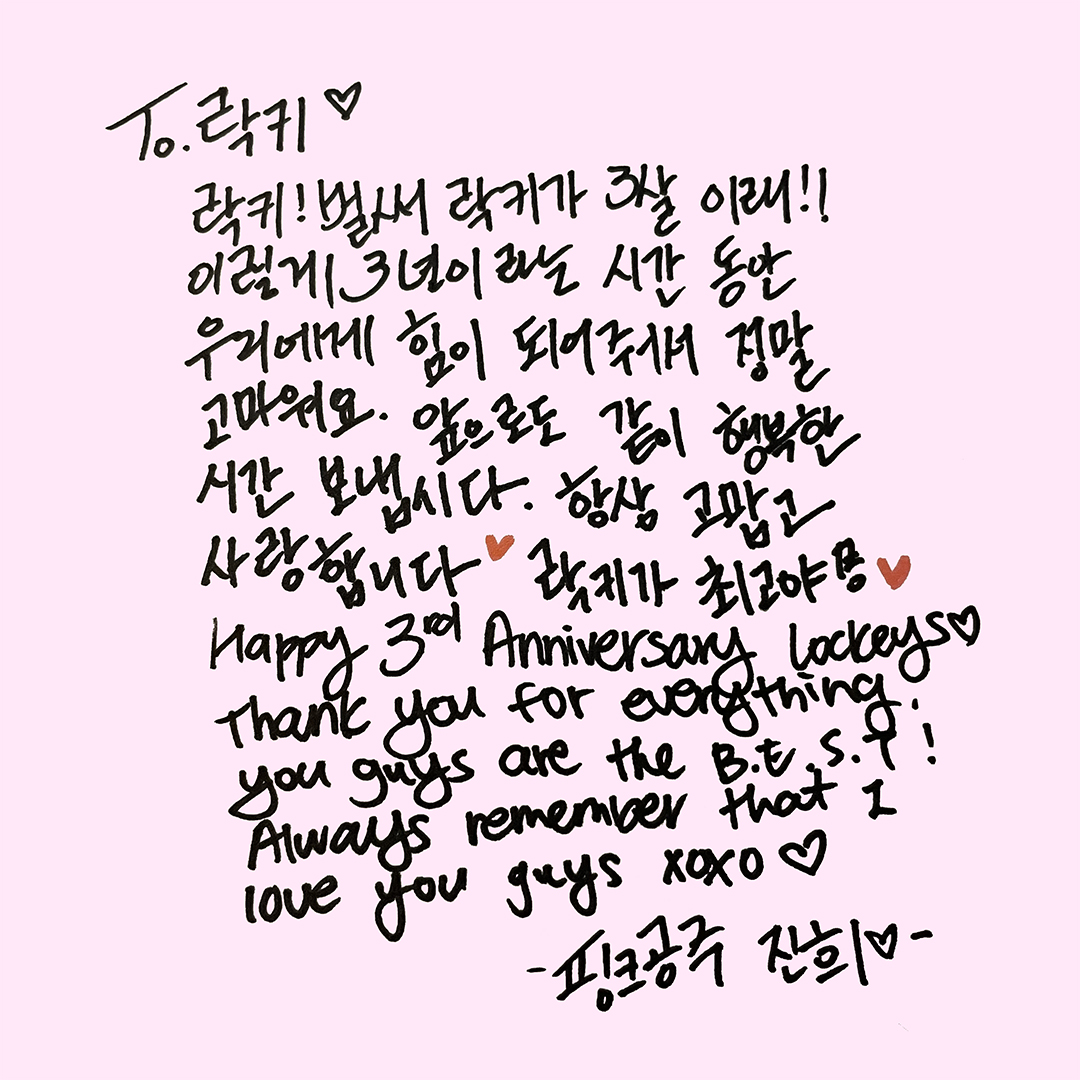 To. 락키♡
락키! 벌써 락키가 3살 이래!!
이렇게 3년이라는 시간 동안
우리에게 힘이 되어주셔서 정말
고마워요. 앞으로도 같이 행복한
시간 보냅시다. 항상 고맙고
사랑합니다♥ 락키가 최고야 뿅♥
Happy 3rd Anniversary Lockeys♡
Thank you for everything.
you guys are the B.E.S.T!
Always remember that I
love you guys xoxo♡
-핑크공주 진희♡-